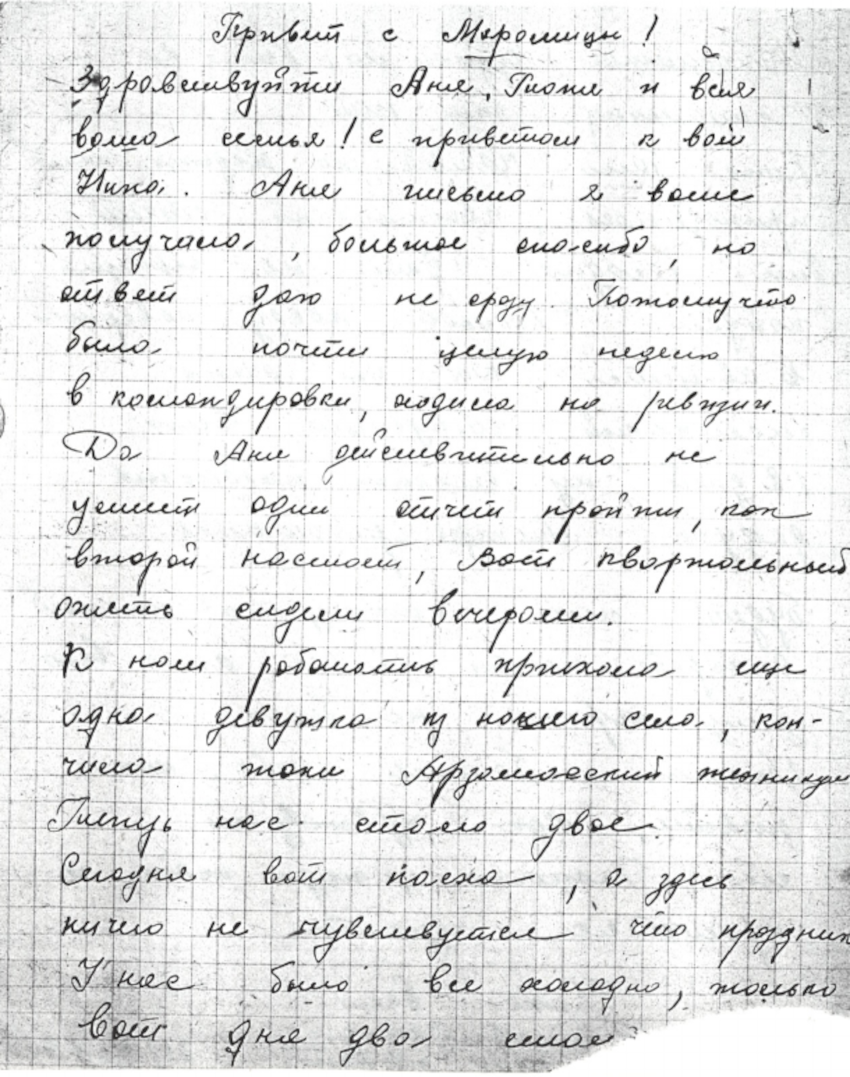 Привет с Меромицы!
Здравствуйте Аня, Толя и вся
ваша семья! с приветом к вам
Нина. Аня письмо я ваше
получила, большое спасибо, но
ответ даю не сразу. Потомучто
была почти целую неделю
в командировки, ходила на ревизии.
Да Аня действительно не
успеет один отчет пройти, как
второй настает, вот квартальный
опять сидели вечерами.
К нам работать приехала еще
одна девушка из нашего села, кон-
чила тоже Арзамасский техникум
Теперь нас стало двое.
Сегодня вот пасха, а здесь
ничего не чувствуется что праздник
У нас было все холодно, только
вот дня два